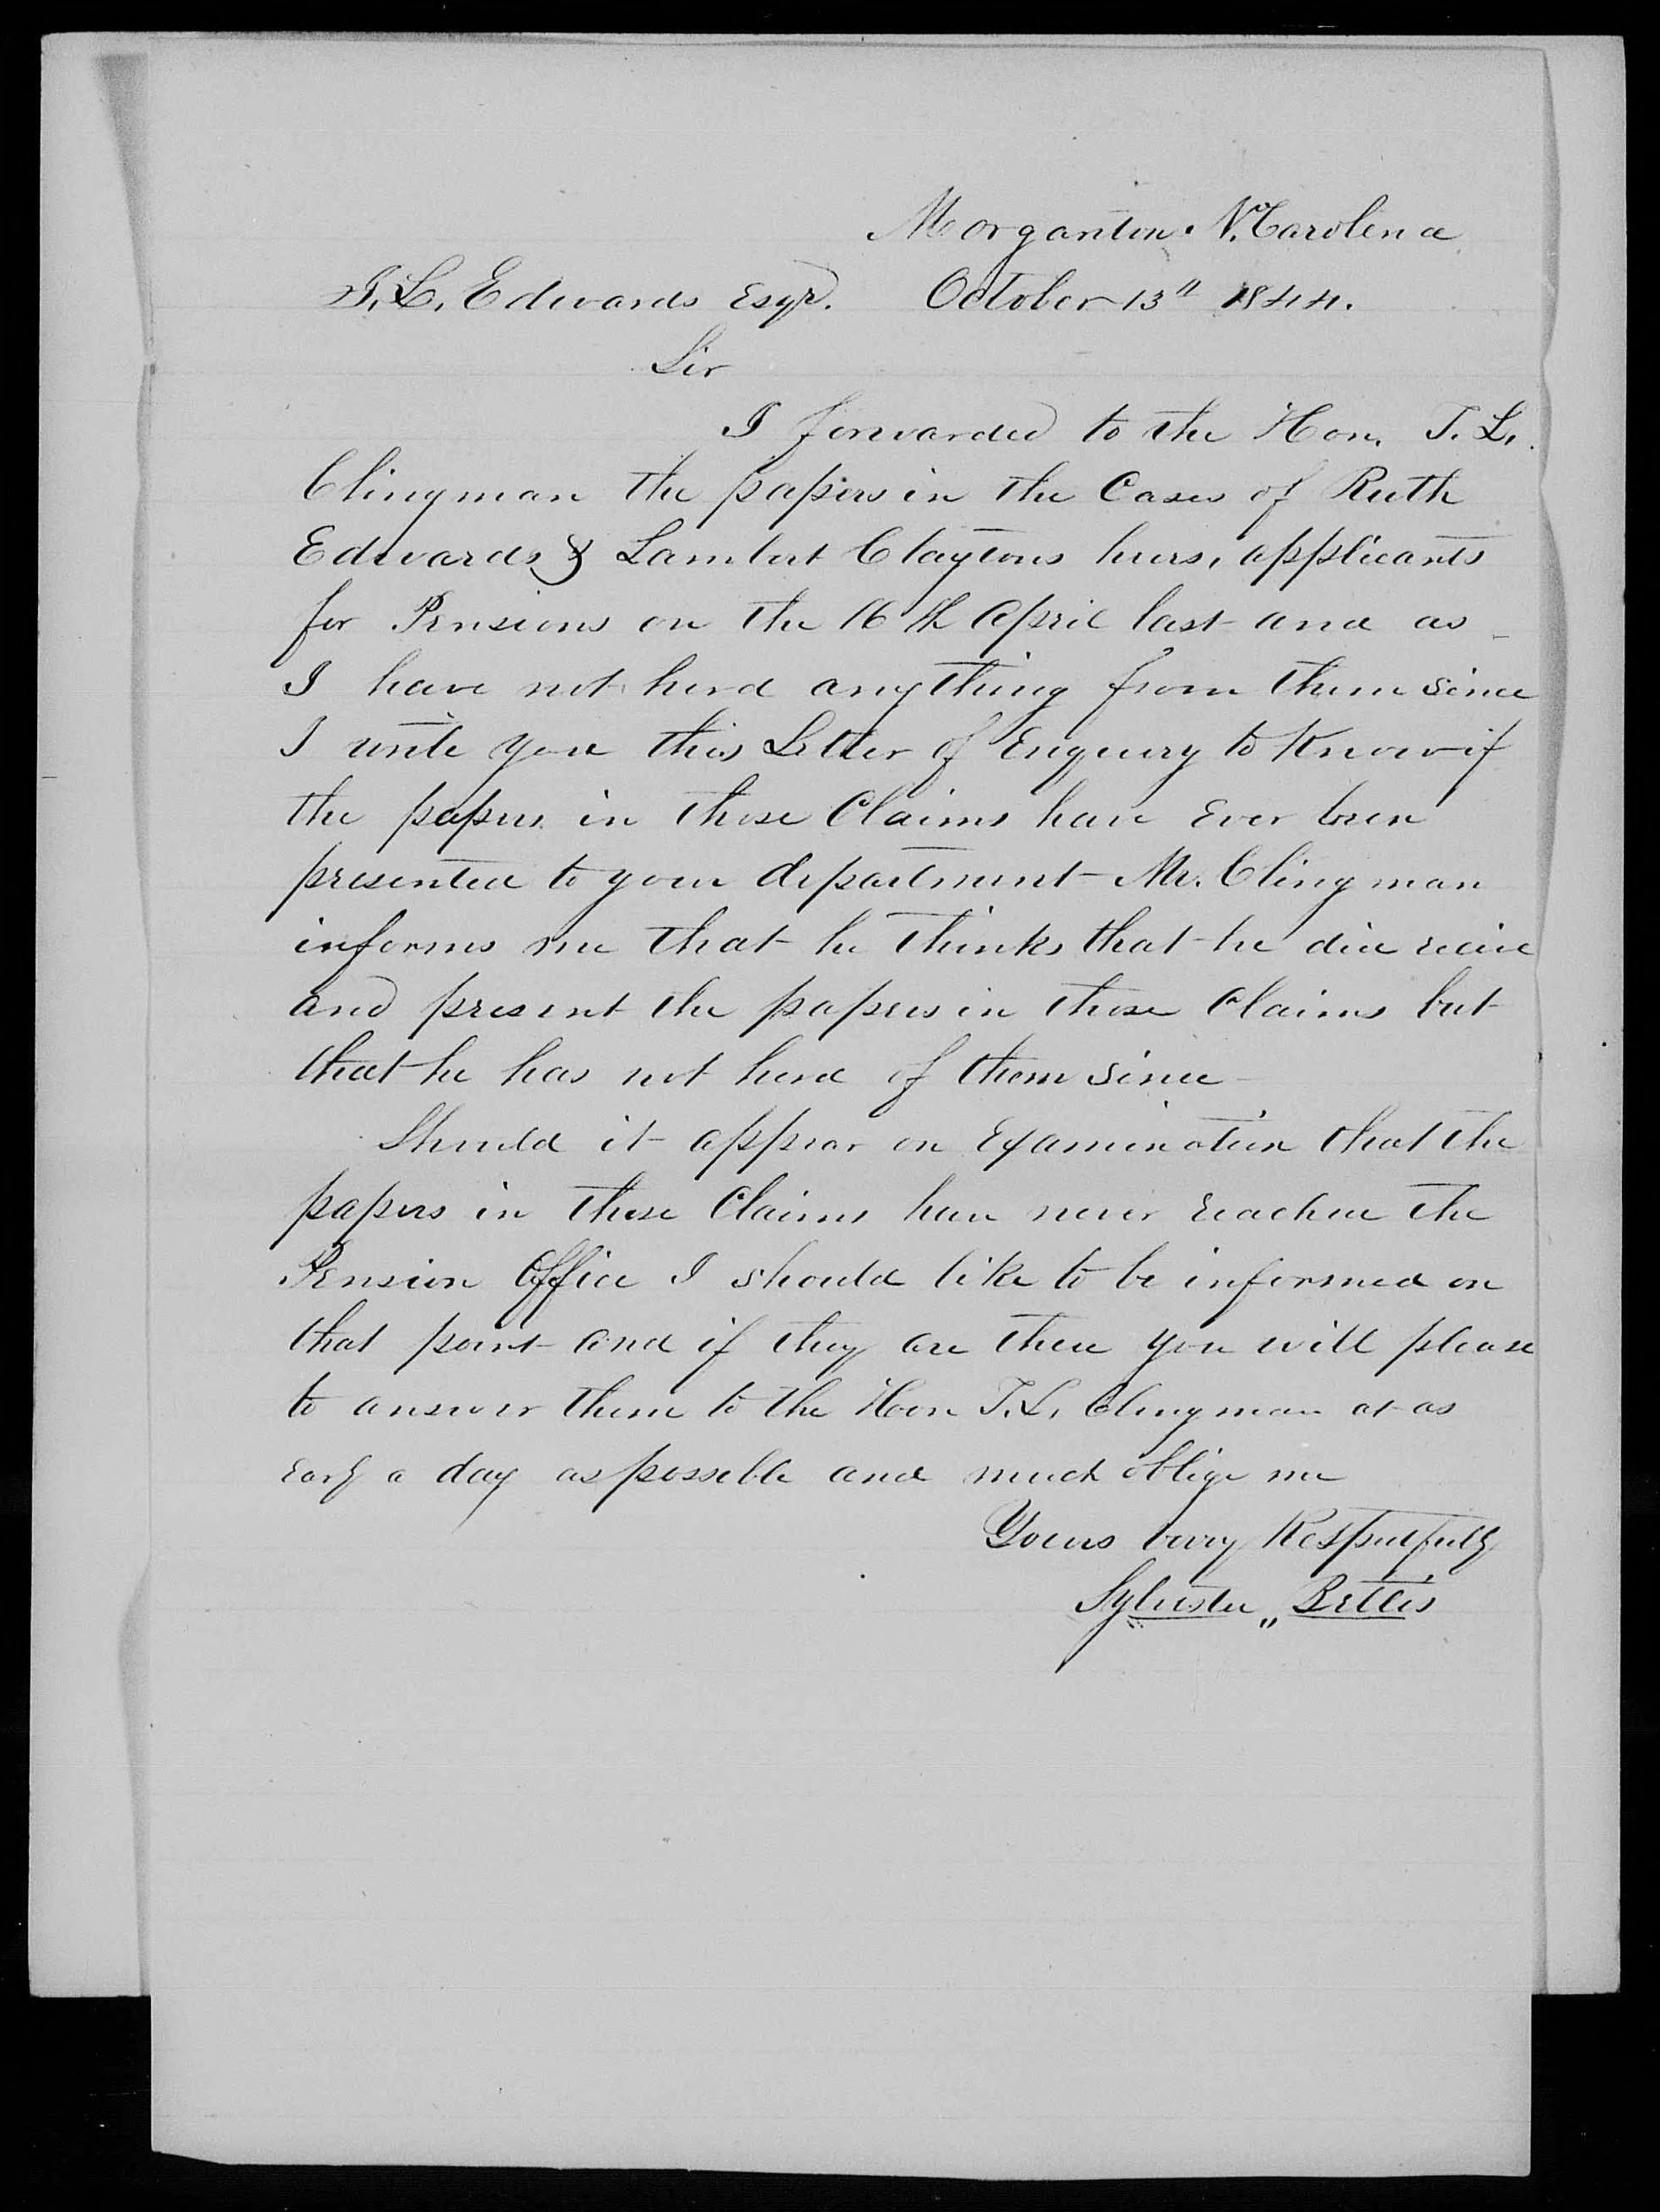 Morganton N. Carolina
J. L. Edwards Esqr. October 13th 1844.
Sir
I forwarded to the Hon. T. L.
Clingman the papers in the Cases of Ruth
Edwards & Lambert Claytons heirs, applicants
for Pensions on the 16th April last and as
I have not herd anything from them since
I write you this Letter of Enquiry to Know if
the papers in those Claims have Ever been
presented to your department - Mr. Clingman
informs me that he thinks that he did recive
and present the papers in those Claims but
that he has not herd of them since -
Should it appear on Examination that the
papers in these Claims have never reached the
Pension Office I should like to be informed on
that point and if they are there you will please
to answer them to the Hon T. L. Clingman at as
Early a day as possible and much oblige me
Yours very Respectfully
Sylvester „ Bettis